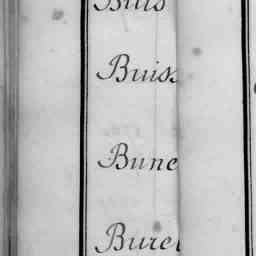 Buis
Buiss
Bune
Buret